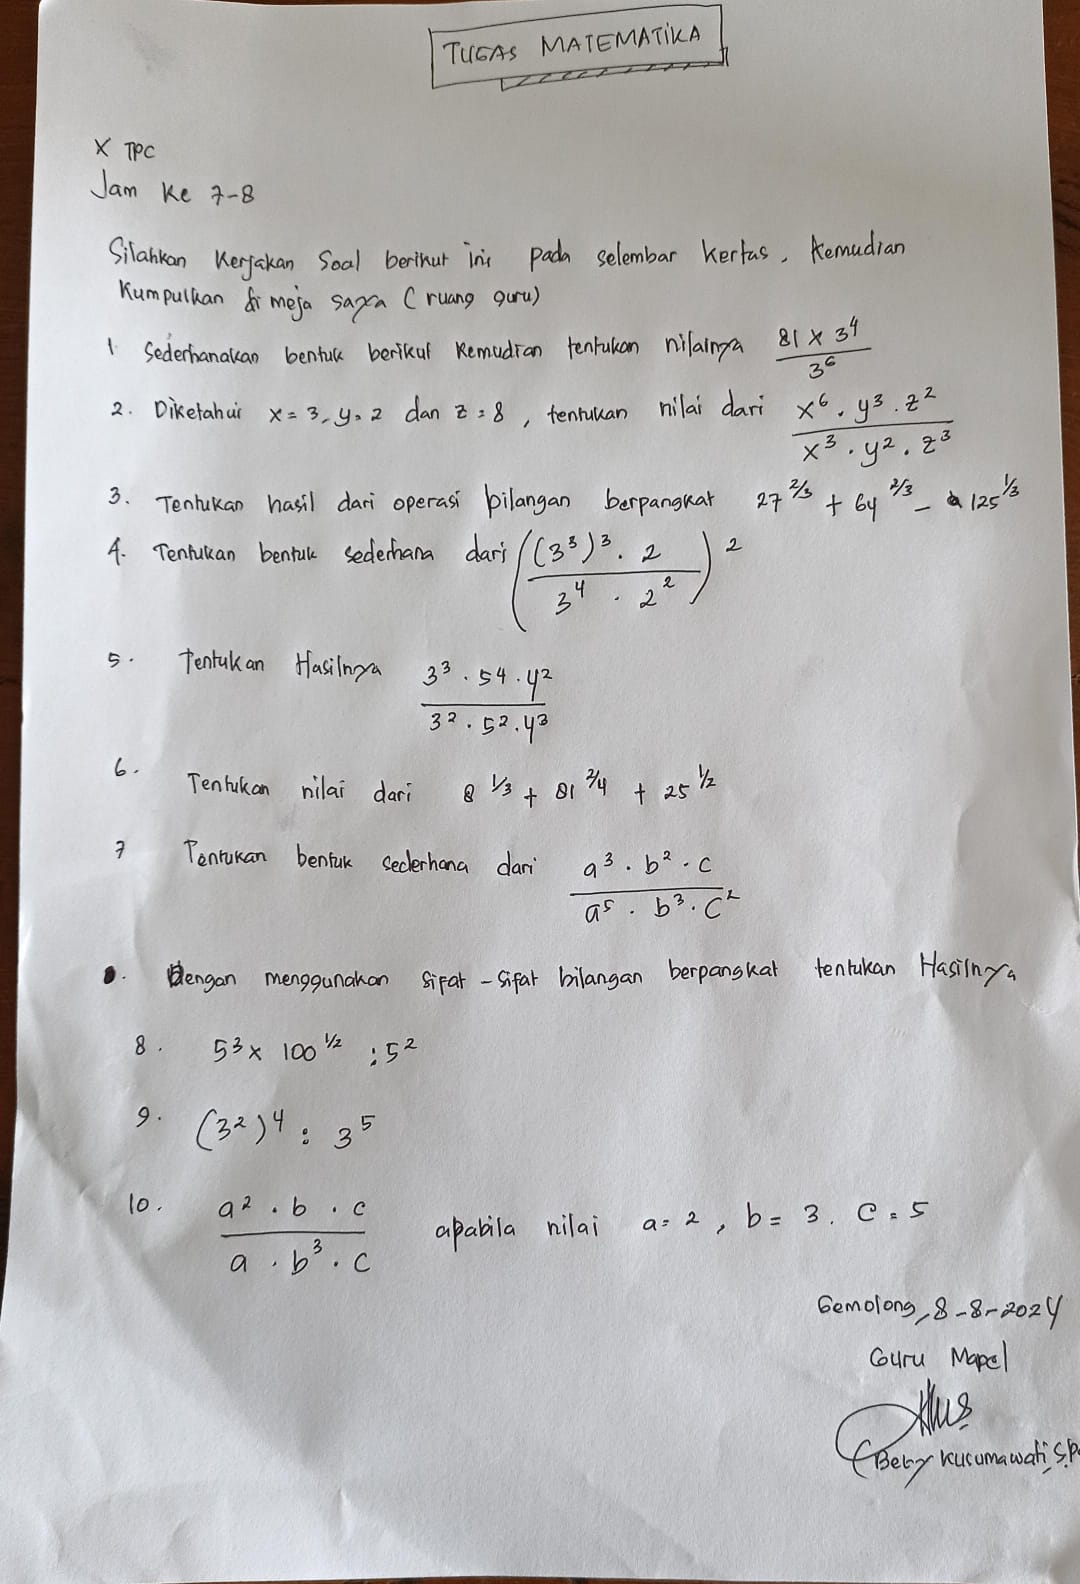 TUGAS MATEMATIKA
X TPC
Jam Ke 7-8
Silahkan Kerjakan Soal berikut ini pada selembar kertas, Kemudian
Kumpulkan di meja saya (ruang guru)
1 Sederhanakan bentuk berikut Kemudian tentukan nilainya (81 x 3⁴)/(3⁶)
2. Diketahui x = 3, y = 2 dan z = 8, tentukan nilai dari (x⁶ . y³ . z²)/(x³ . y² . z³)
3. Tentukan hasil dari operasi bilangan berpangkat 27^2/3 + 64^2/3 - 125^1/3
4. Tentukan bentuk sederhana dari (((3³)³ . 2)/(3⁴ . 2²))²
5. Tentukan Hasilnya (3³ . 54 . 4²)/(3² . 5² . 4³)
6. Tentukan nilai dari 8^1/3 + 81^2/4 + 25^1/2
7 Tentukan bentuk sederhana dari (a³ . b² . c)/(a⁵ . b³ . c²)
Dengan menggunakan sifat-sifat bilangan berpangkat tentukan Hasilnya
8. 5³ x 100^1/2 : 5²
9. (3²)⁴ : 3⁵
10. (a² . b . c)/(a . b³ . c) apabila nilai a = 2, b = 3. c = 5
Gemolong, 8-8-2024
Guru Mapel
Kusumawati, S.P